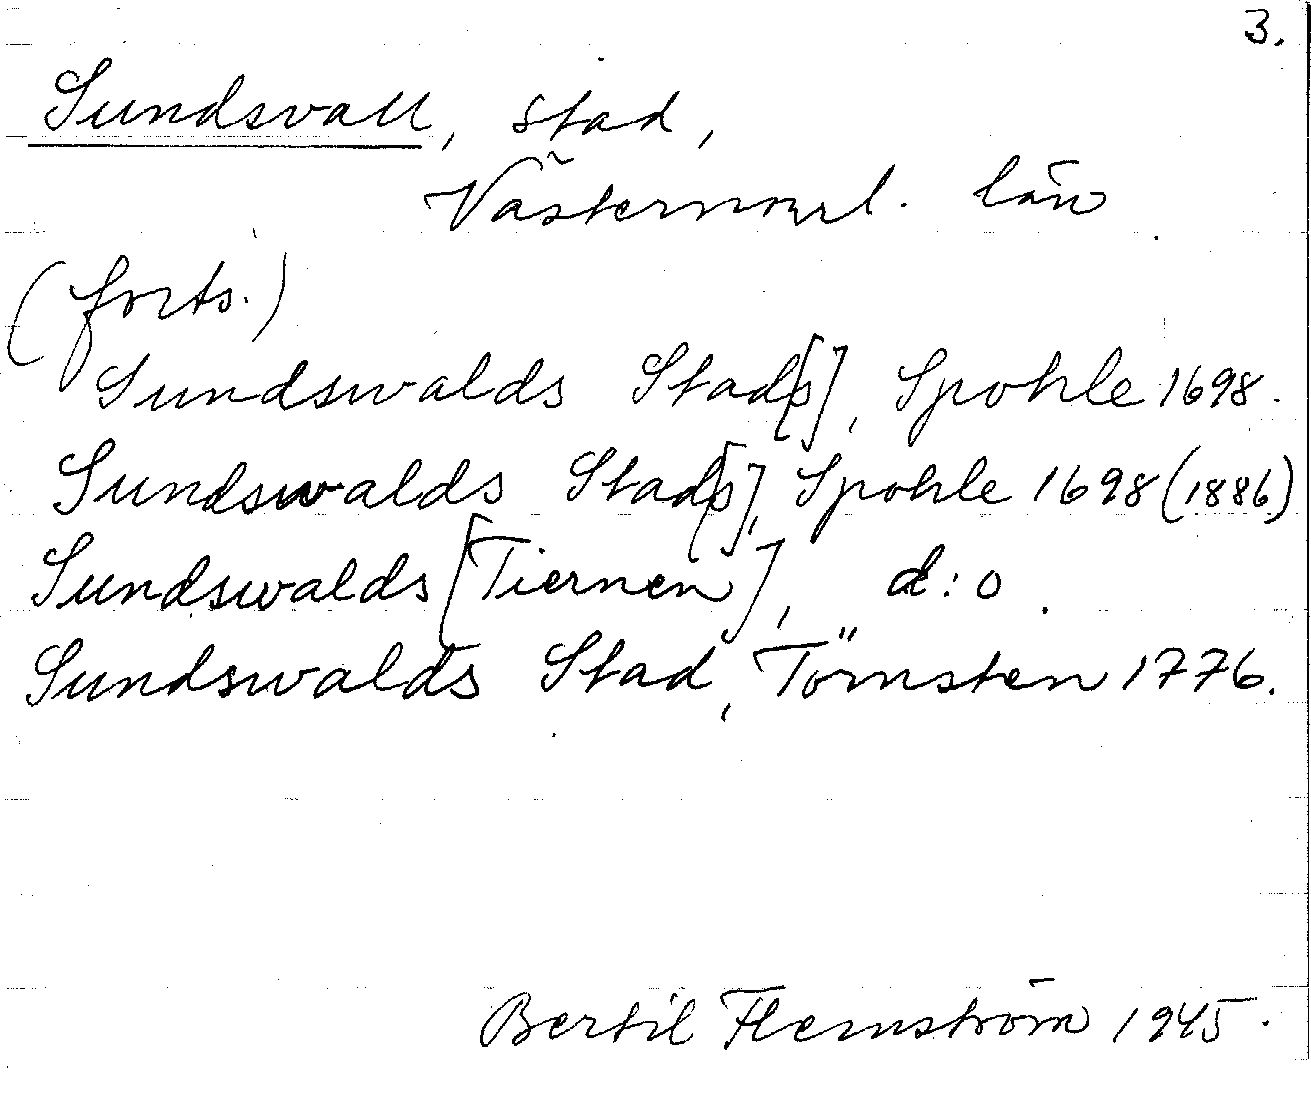 3.
Sundsvall, stad,
Västernorrl. län
(forts.)
Sundswalds Stad[s], Spohle 1698.
Sundswalds Stad[s], Spohle 1698 (1886)
Sundswalds [Tiernen], d:o.
Sundswalds Stad, Törnsten 1776.
Bertil Flemström 1945.